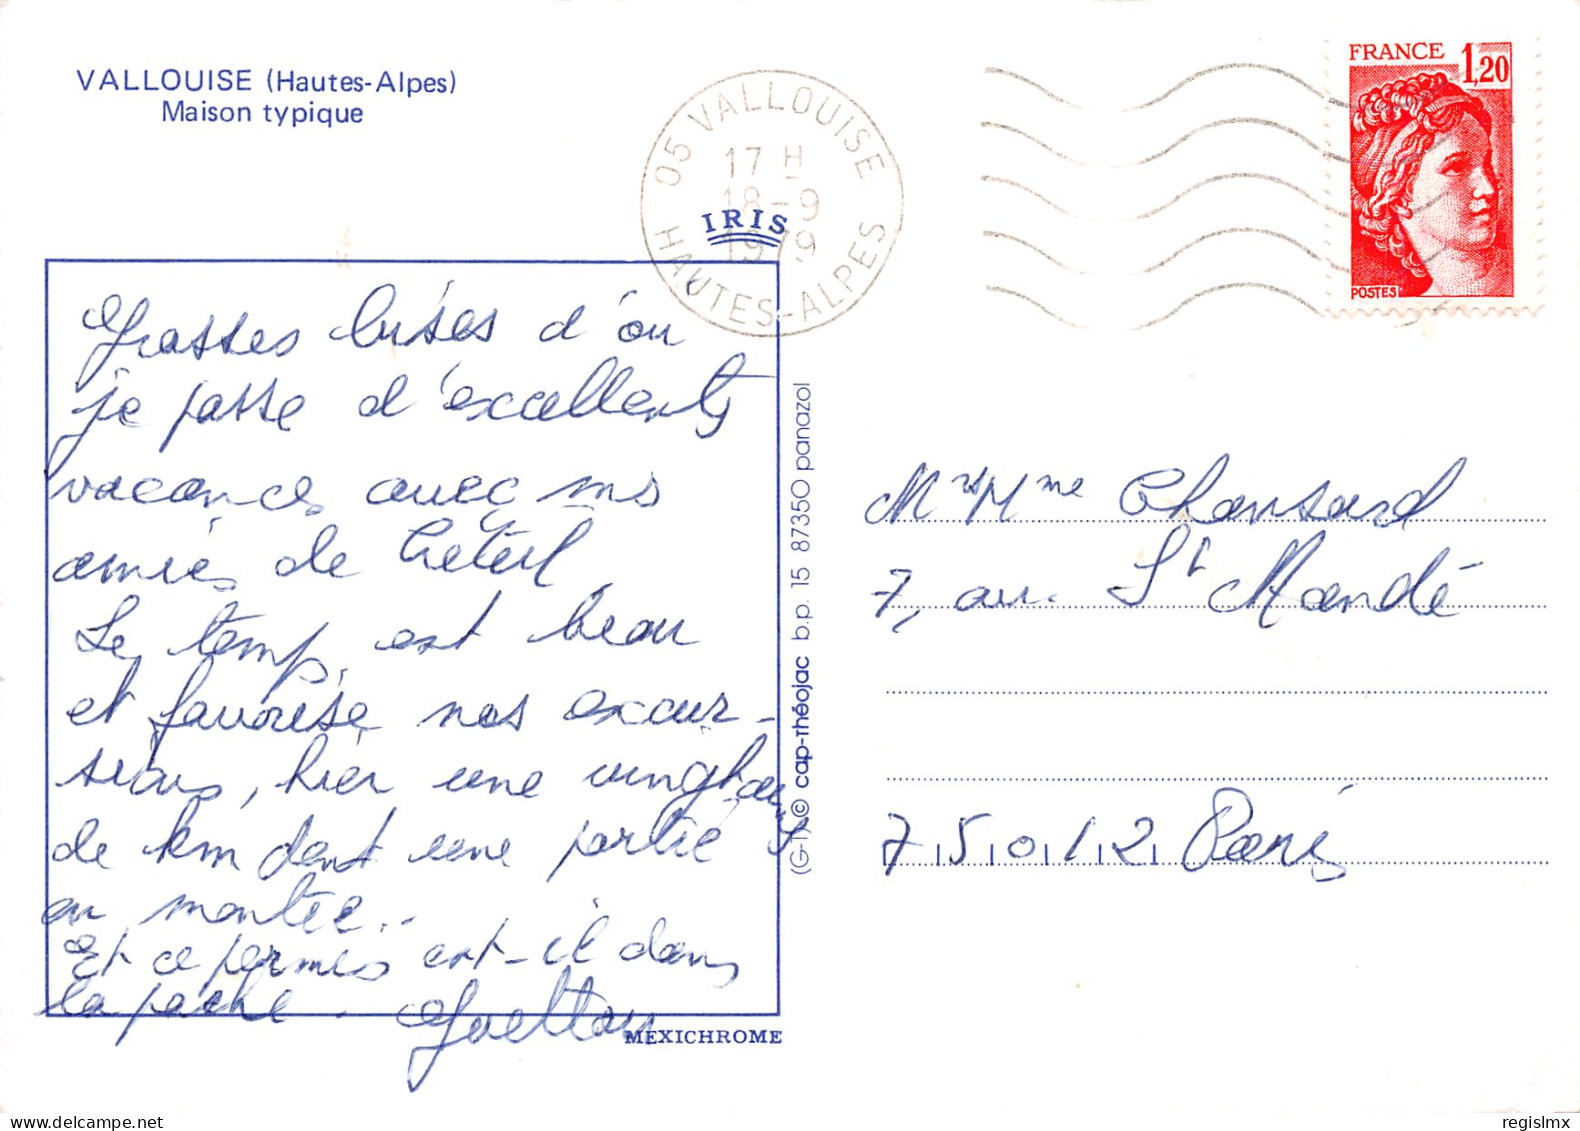 VALLOUISE (Hautes-Alpes)
Maison typique
05 VALLOUISE
17 H
18-9
1979
HAUTES-ALPES
FRANCE 1,20
POSTES
IRIS
Grosses bises d'ou
je passe d'excellents
vacances avec mes
amies de Créteil.
Le temps est beau
et favorise nos excur-
sions, hier une vingtaine
de km dont une partie
en montée..
Et ce permis est-il dans
la poche.
MEXICHROME
(G-1) © cap-théojac b.p. 15 87350 panazol
Mr & Mme Chansard
7, av. St Mandé
75012 Paris
Delcampe.net
regislmx